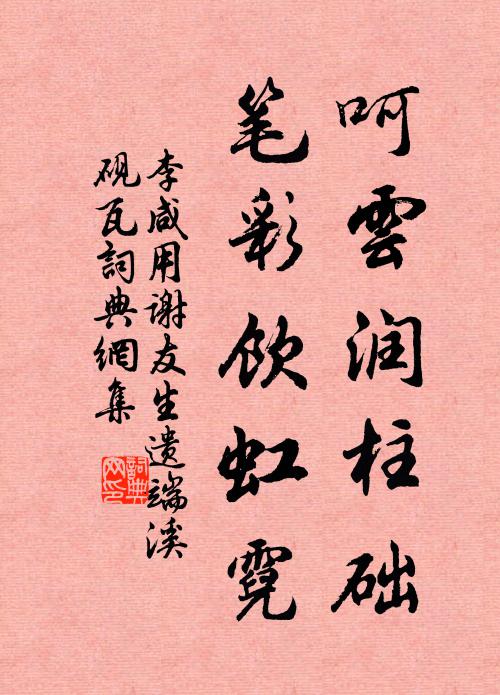 呵雲润柱础
笔彩饮虹霓
李咸用谢友生遗端溪
砚瓦詞典網集
詞典网印